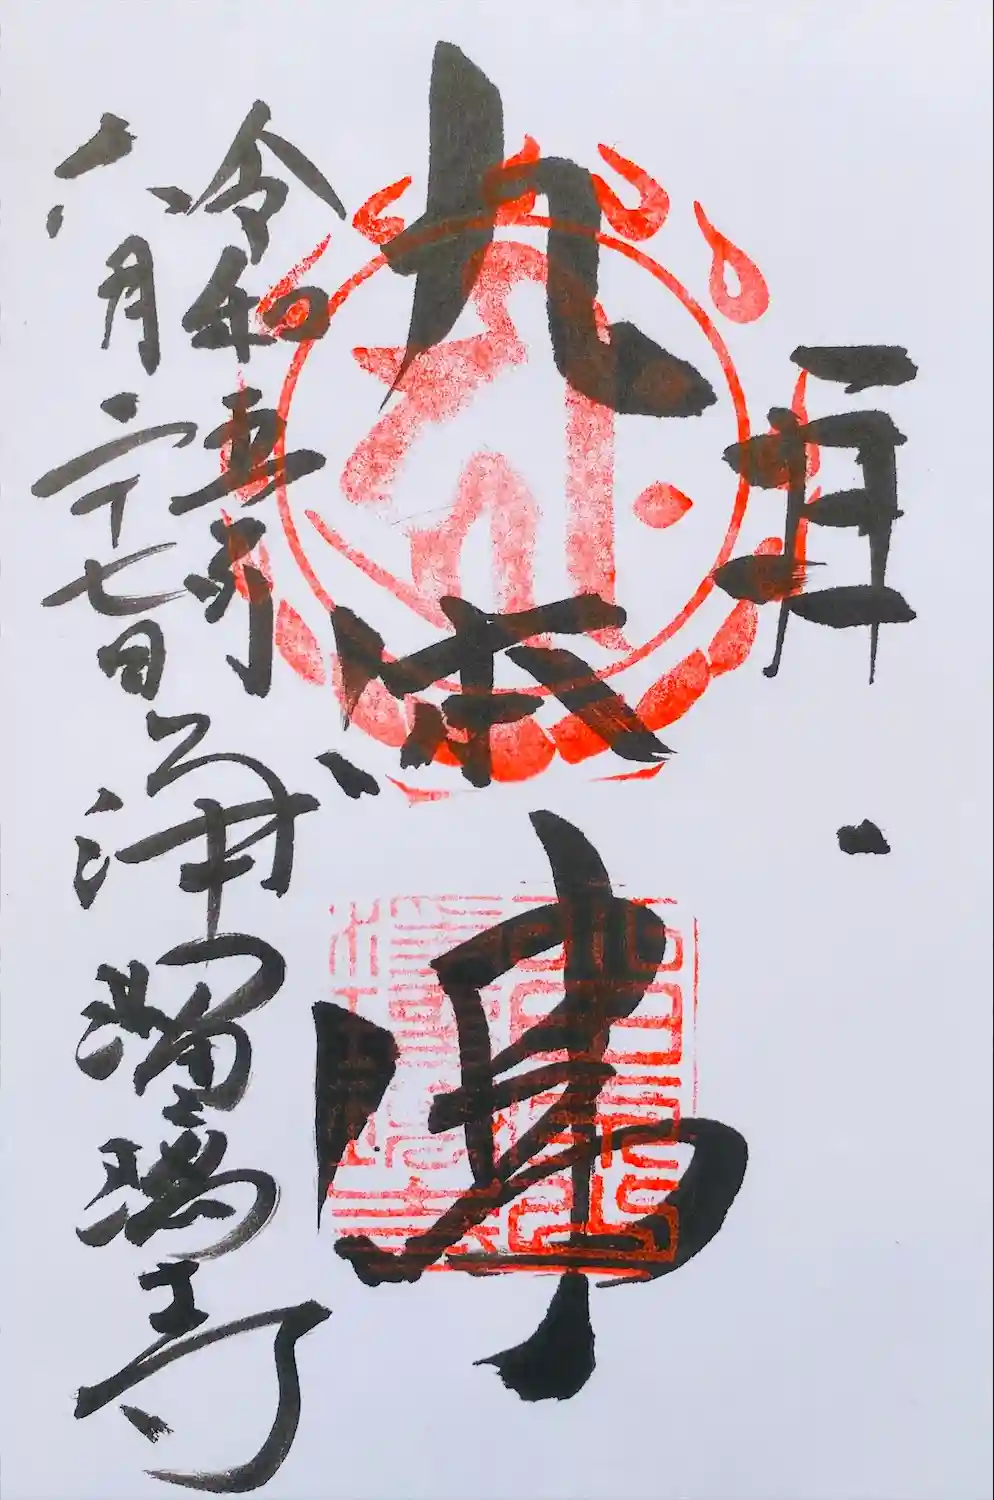 九体佛
令和五年
六月二十七日
浄瑠璃寺